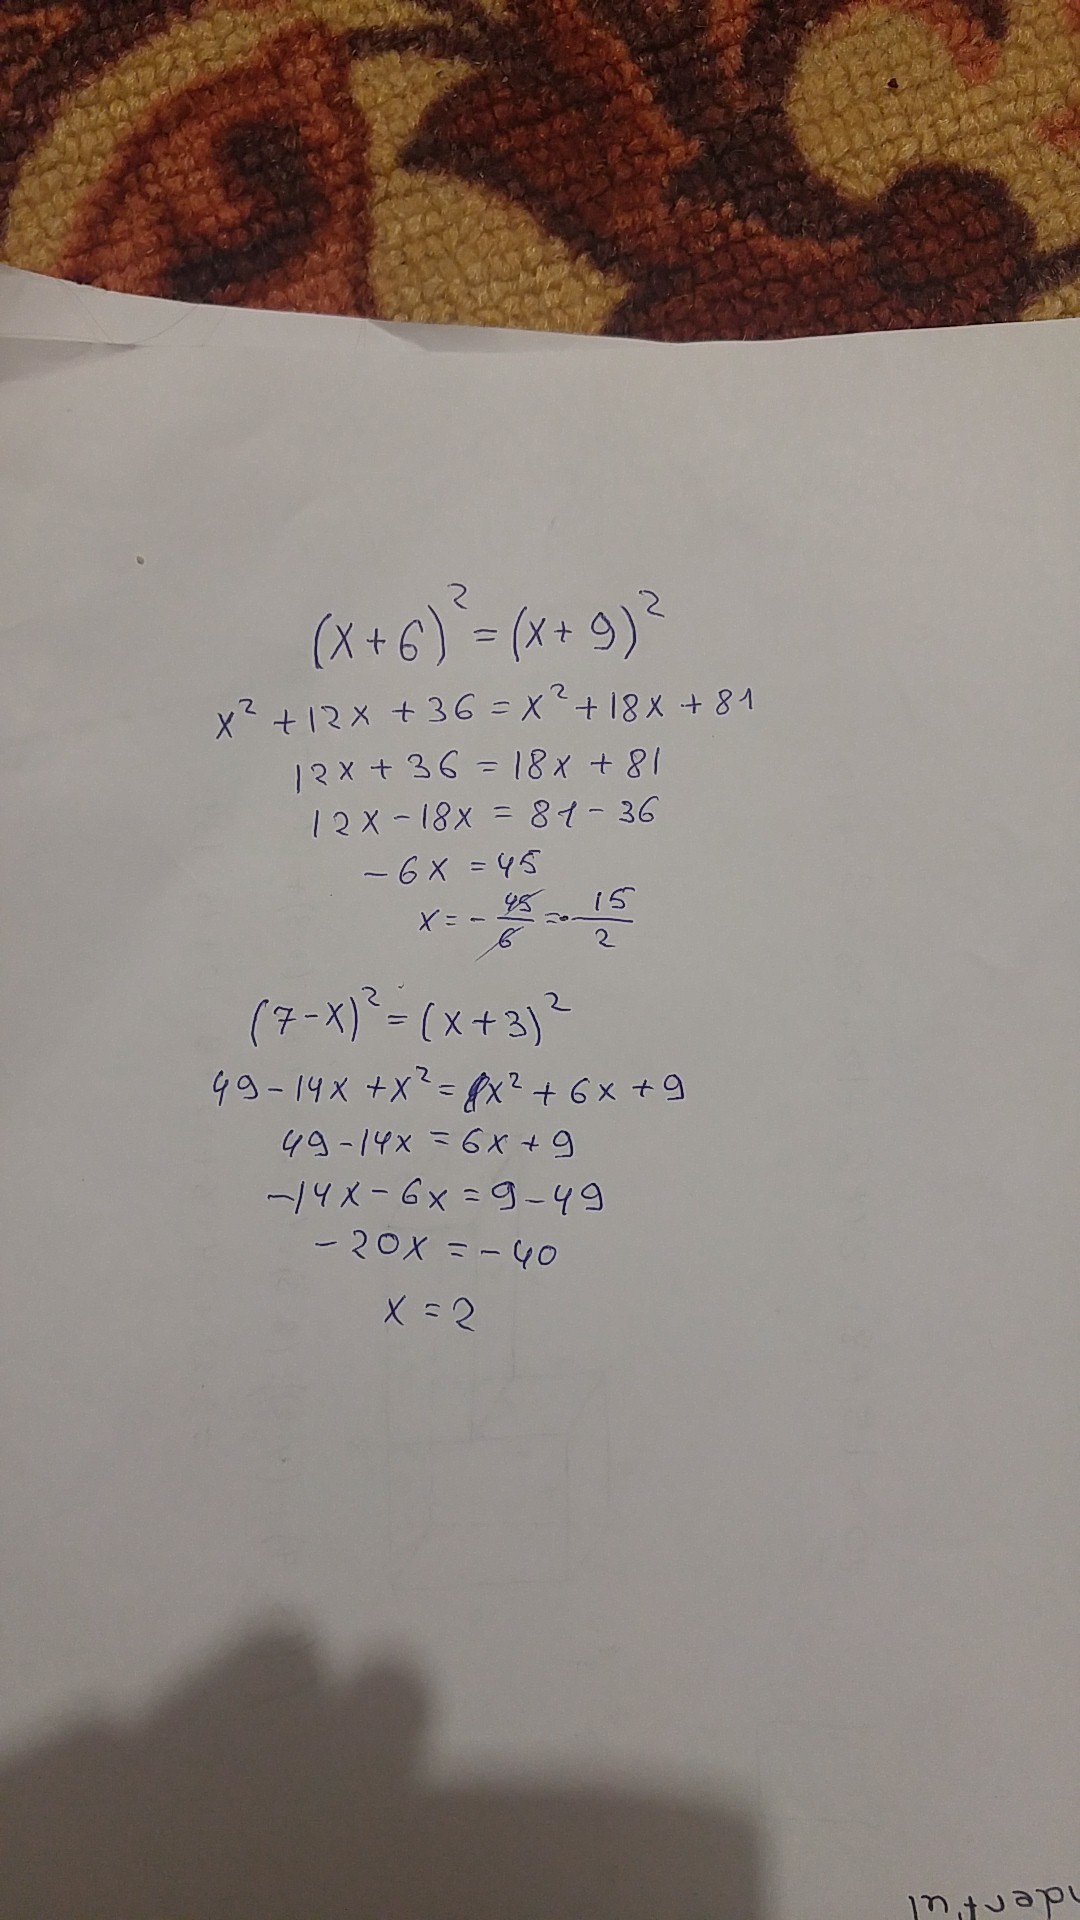 (x+6)²=(x+9)²
x²+12x+36=x²+18x+81
12x+36=18x+81
12x-18x=81-36
-6x=45
x=-45/6=-15/2
(7-x)²=(x+3)²
49-14x+x²=x²+6x+9
49-14x=6x+9
-14x-6x=9-49
-20x=-40
x=2